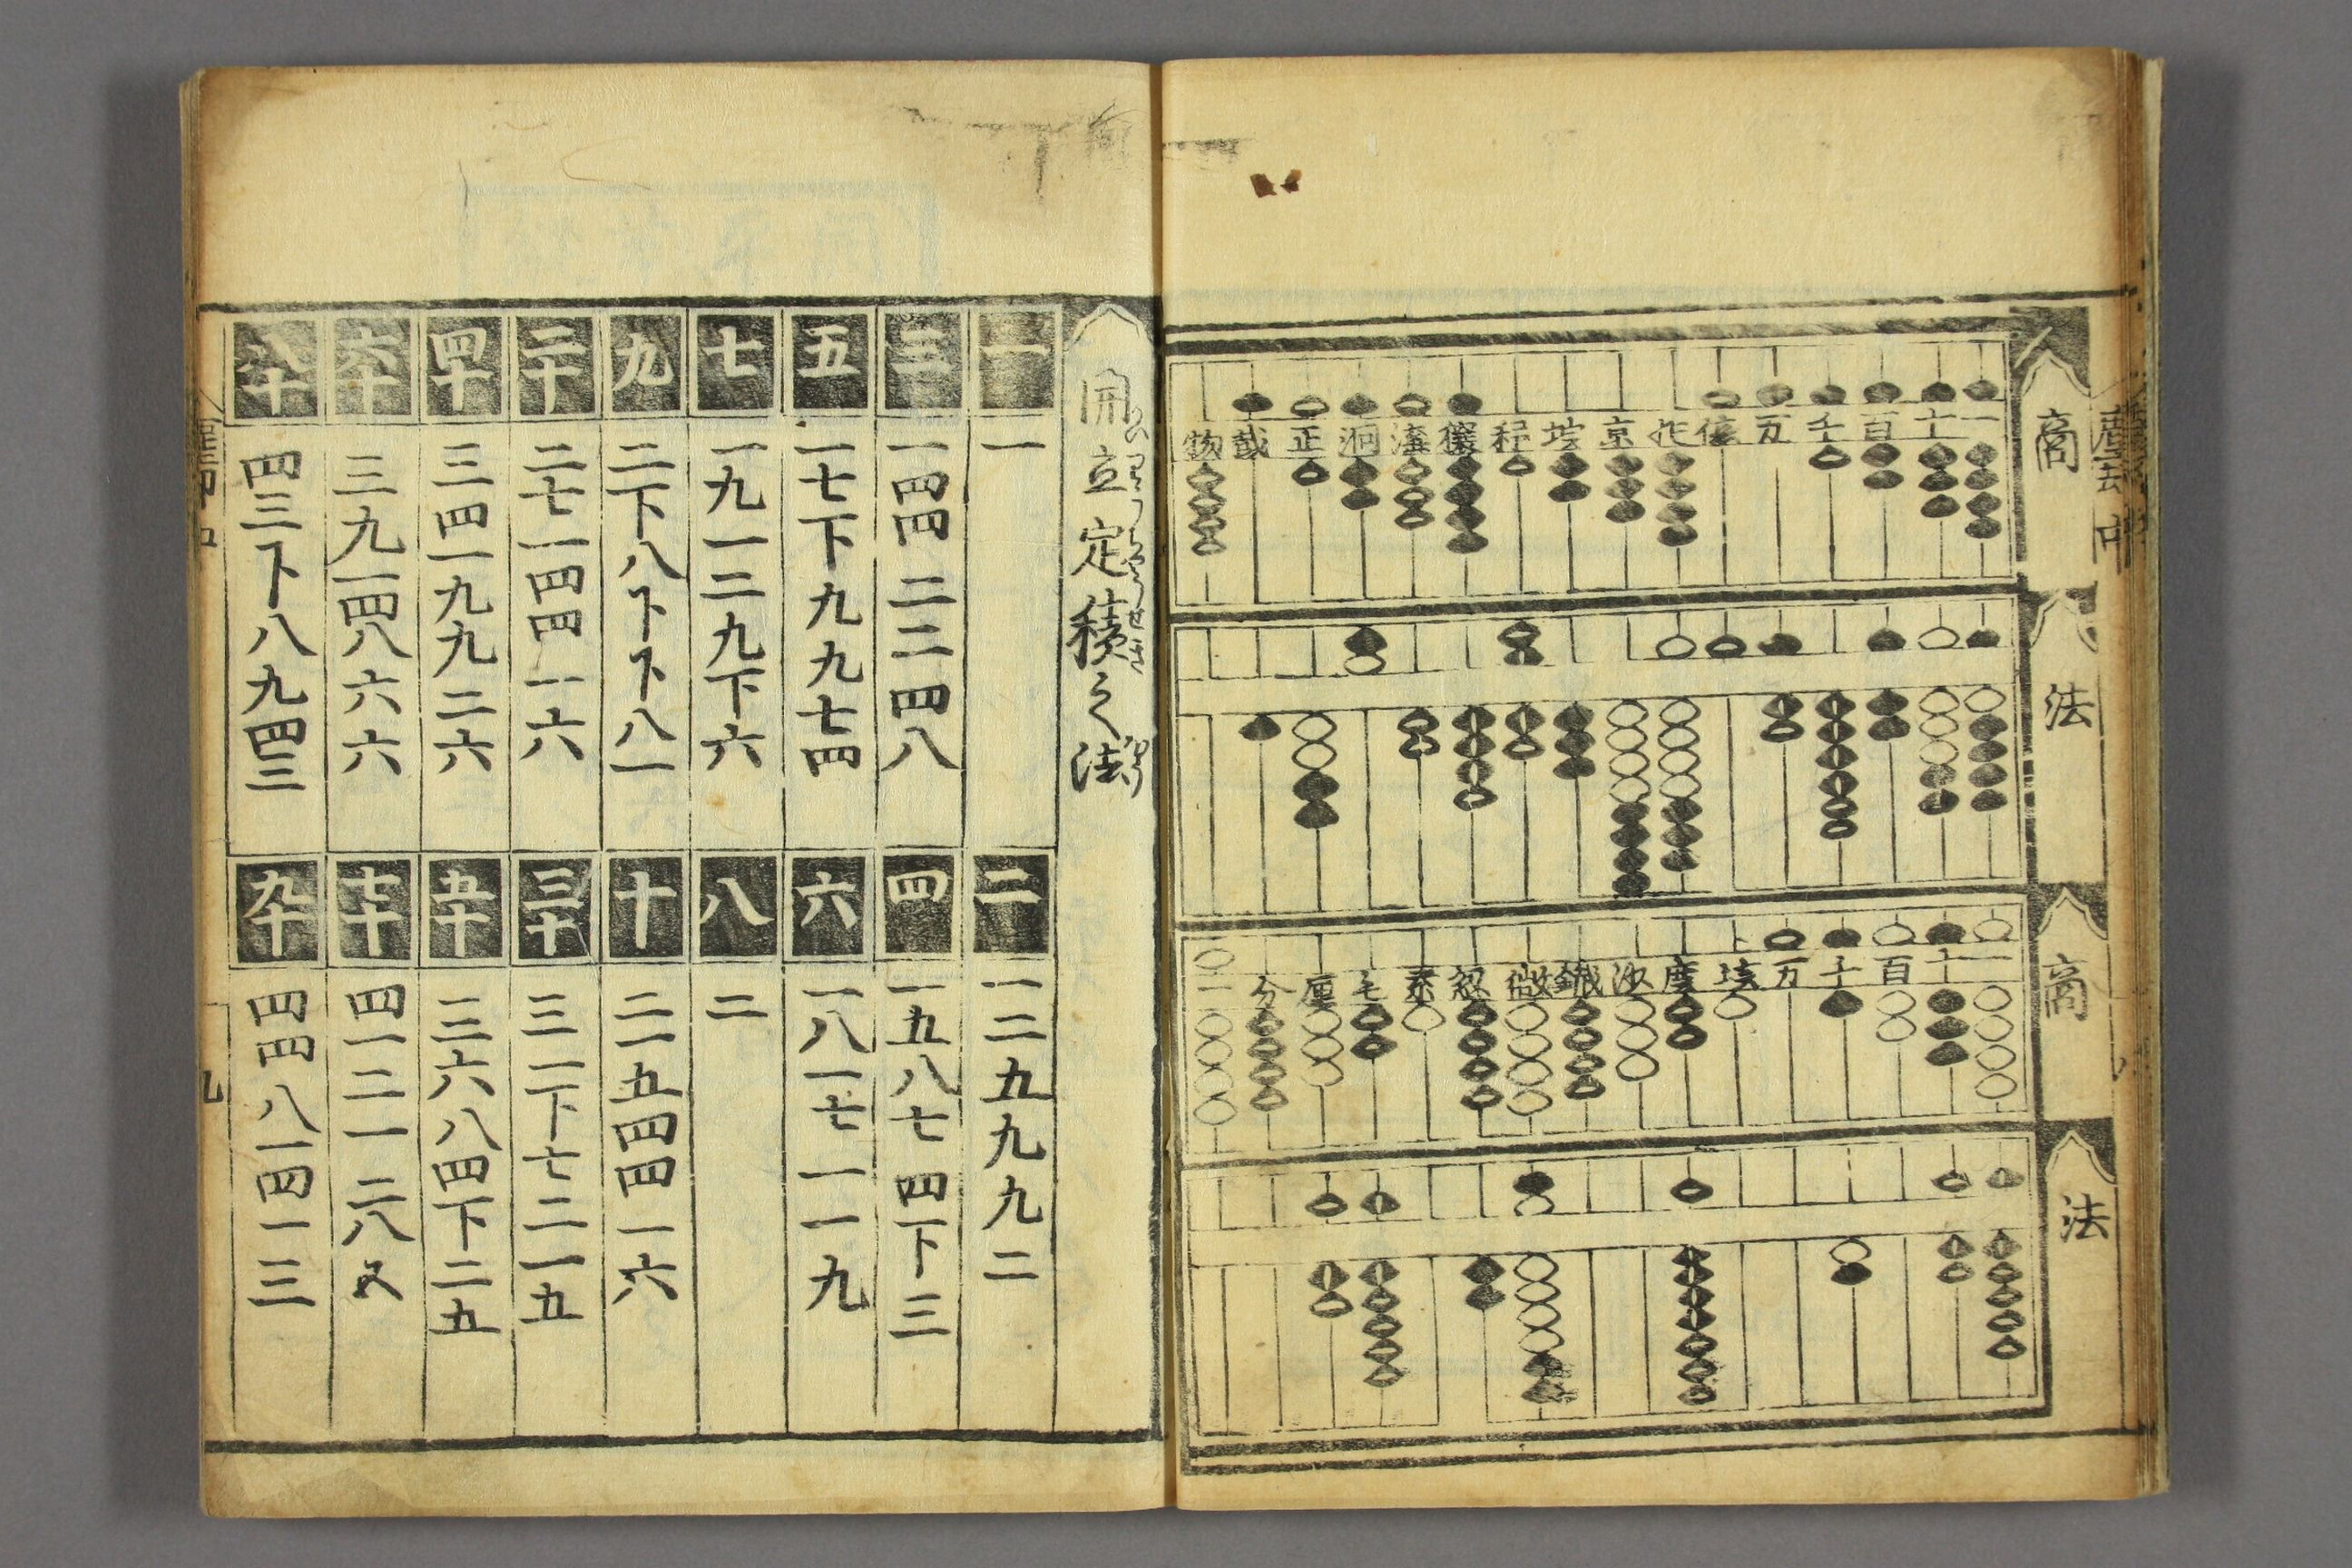 商
一十百千万億兆京垓𥝱穣溝澗正載極
法
商
一十百千万
塵沙繊微忽糸毛厘分一
法
開立定積之法
一
一
二
一二五九九二
三
一四四二二四八
四
一五八七四下三
五
一七下九九七四
六
一八一七一一九
七
一九一二九下六
八
二
九
二下八下下八一
十
二一五四四一六
二十
二七一四四一六
三十
三一下七二一五
四十
三四一九九二六
五十
三六八四下二五
六十
三九一四八六六
七十
四一二一二八
八十
四三下八九四三
九十
四四八一四一三
九